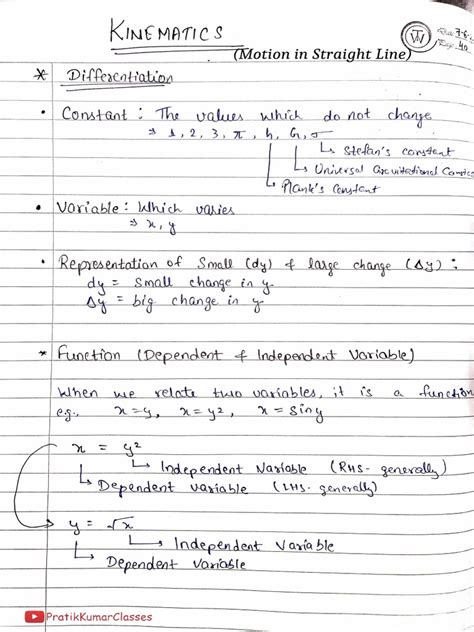 KINEMATICS
(Motion in Straight Line)
* Differentiation
• Constant : The values which do not change
⇒ 1, 2, 3, π, h, G, σ
↳ Stefan's constant
↳ Universal Gravitational
↳ Plank's Constant
• Variable : Which varies
⇒ x, y
• Representation of Small (dy) & large change (Δy) :
dy = small change in y.
Δy = big change in y.
* Function (Dependent & Independent Variable)
When we relate two variables, it is a function
eg., x=y, x = y², x = sin y
x = y²
↳ Independent Variable (RHS- generally)
↳ Dependent variable (LHS- generally)
y = √x
↳ Independent Variable
↳ Dependent Variable
PratikKumarClasses